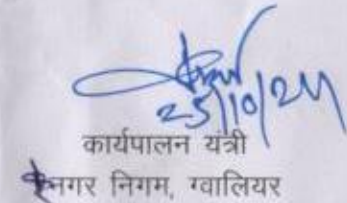 25/10/24
कार्यपालन यंत्री
नगर निगम, ग्वालियर